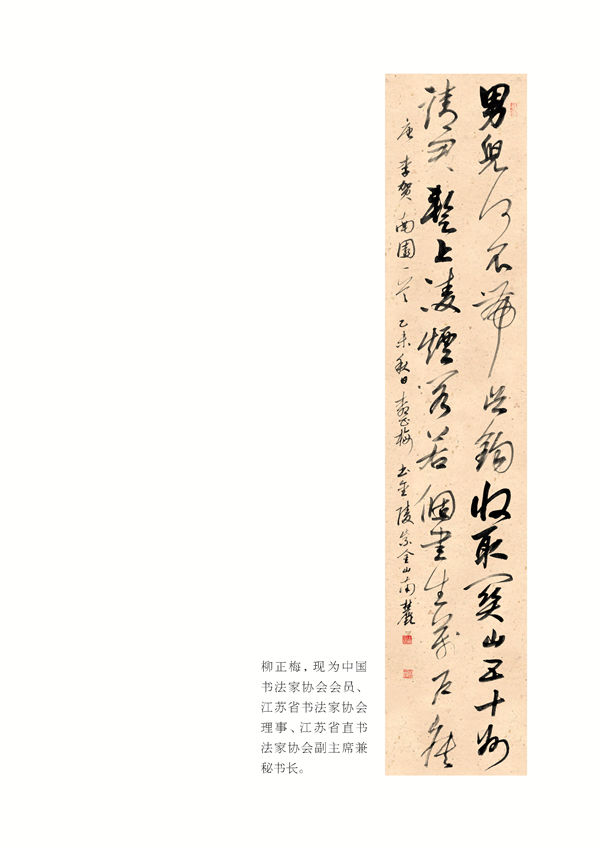 男兒何不帶吳鉤收取關山五十州
請君暫上凌煙閣若個書生萬戶侯
唐 李賀 南園一首 乙未秋日 柳正梅 書金陵紫金山南麓
柳正梅，现为中国
书法家协会会员、
江苏省书法家协会
理事、江苏省直书
法家协会副主席兼
秘书长。